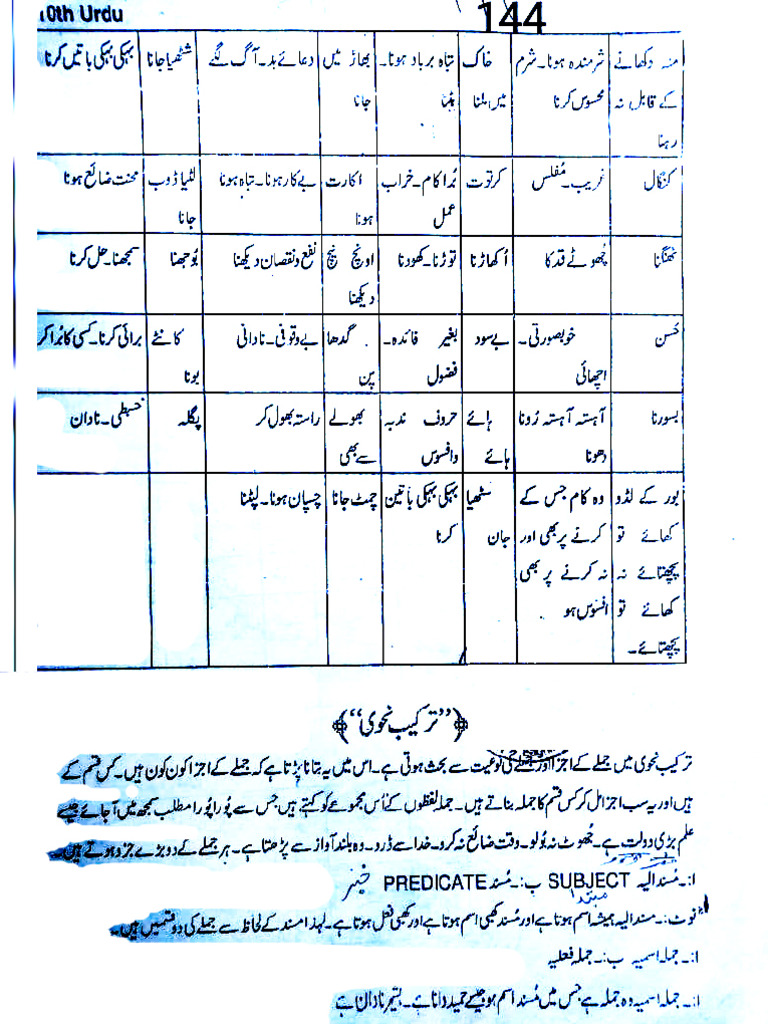 10th Urdu
144
منہ دکھانے کے قابل نہ رہنا
شرمندہ ہونا۔ شرم محسوس کرنا
خاک میں ملنا
تباہ برباد ہونا۔
بھاڑ میں جانا
دعائے بد۔ آگ لگے
سٹھیا جانا
بہکی بہکی باتیں کرنا
کنگال
غریب۔ مُفلس
کرتوت
بُرا کام۔ خراب عمل
اکارت ہونا
بے کار ہونا۔ تباہ ہونا
لٹیا ڈوب جانا
محنت ضائع ہونا
ٹھنگنا
چھوٹے قد کا
اُکھاڑنا
توڑنا۔ کھودنا
اونچ نیچ دیکھنا
نفع و نقصان دیکھنا
بُوجھنا
سمجھنا۔ حل کرنا
حُسن
خوبصورتی۔ اچھائی
بے سود
بغیر فائدہ۔ فضول
گدھا پن
بے وقوفی۔ نادانی
کانٹے بونا
برائی کرنا۔ کسی کا بُرا کر
بسورنا
آہستہ آہستہ رُونا دھونا
ہائے ہائے
حروف ندبہ و افسوس
بھولے سے بھی
راستہ بھول کر
پگلہ
خبطی۔ نادان
بور کے لڈو کھائے تو پچھتائے نہ کھائے تو پچھتائے۔
وہ کام جس کے کرنے پر بھی اور نہ کرنے پر بھی افسوس ہو
سٹھیا جان
بہکی بہکی باتین کرنا
چمٹ جانا
چسپاں ہونا۔ لپٹنا
﴿”ترکیب نحوی“﴾
ترکیب نحوی میں جملے کے اجزا اور جملے کی نوعیت سے بحث ہوتی ہے۔ اس میں یہ بتانا پڑتا ہے کہ جملے کے اجزا کون کون ہیں۔ کس قسم کے
ہیں اور یہ سب اجزا مل کر کس قسم کا جملہ بناتے ہیں۔ جملہ لفظوں کے اُس مجموعے کو کہتے ہیں جس سے پُورا پُورا مطلب سمجھ میں آجائے جیسے
علم بڑی دولت ہے۔ جُھوٹ نہ بُولو۔ وقت ضائع نہ کرو۔ خدا سے ڈرو۔ وہ بلند آواز سے پڑھتا ہے۔ ہر جملے کے دو بڑے جزو ہوتے ہیں۔
ا:۔ مُسند الیہ SUBJECT ب:۔ مُسند PREDICATE خبر
مبتدا
نوٹ:۔ مسند الیہ ہمیشہ اسم ہوتا ہے اور مُسند کبھی اسم ہوتا ہے اور کبھی فعل ہوتا ہے۔ لہذا مسند کے لحاظ سے جملے کی دو قسمیں ہیں۔
ا:۔ جملہ اسمیہ ب:۔ جملہ فعلیہ
ا:۔ جملہ اسمیہ وہ جملہ ہے جس میں مُسند اسم ہو جیسے حمید دانا ہے۔ بشیر نادان ہے